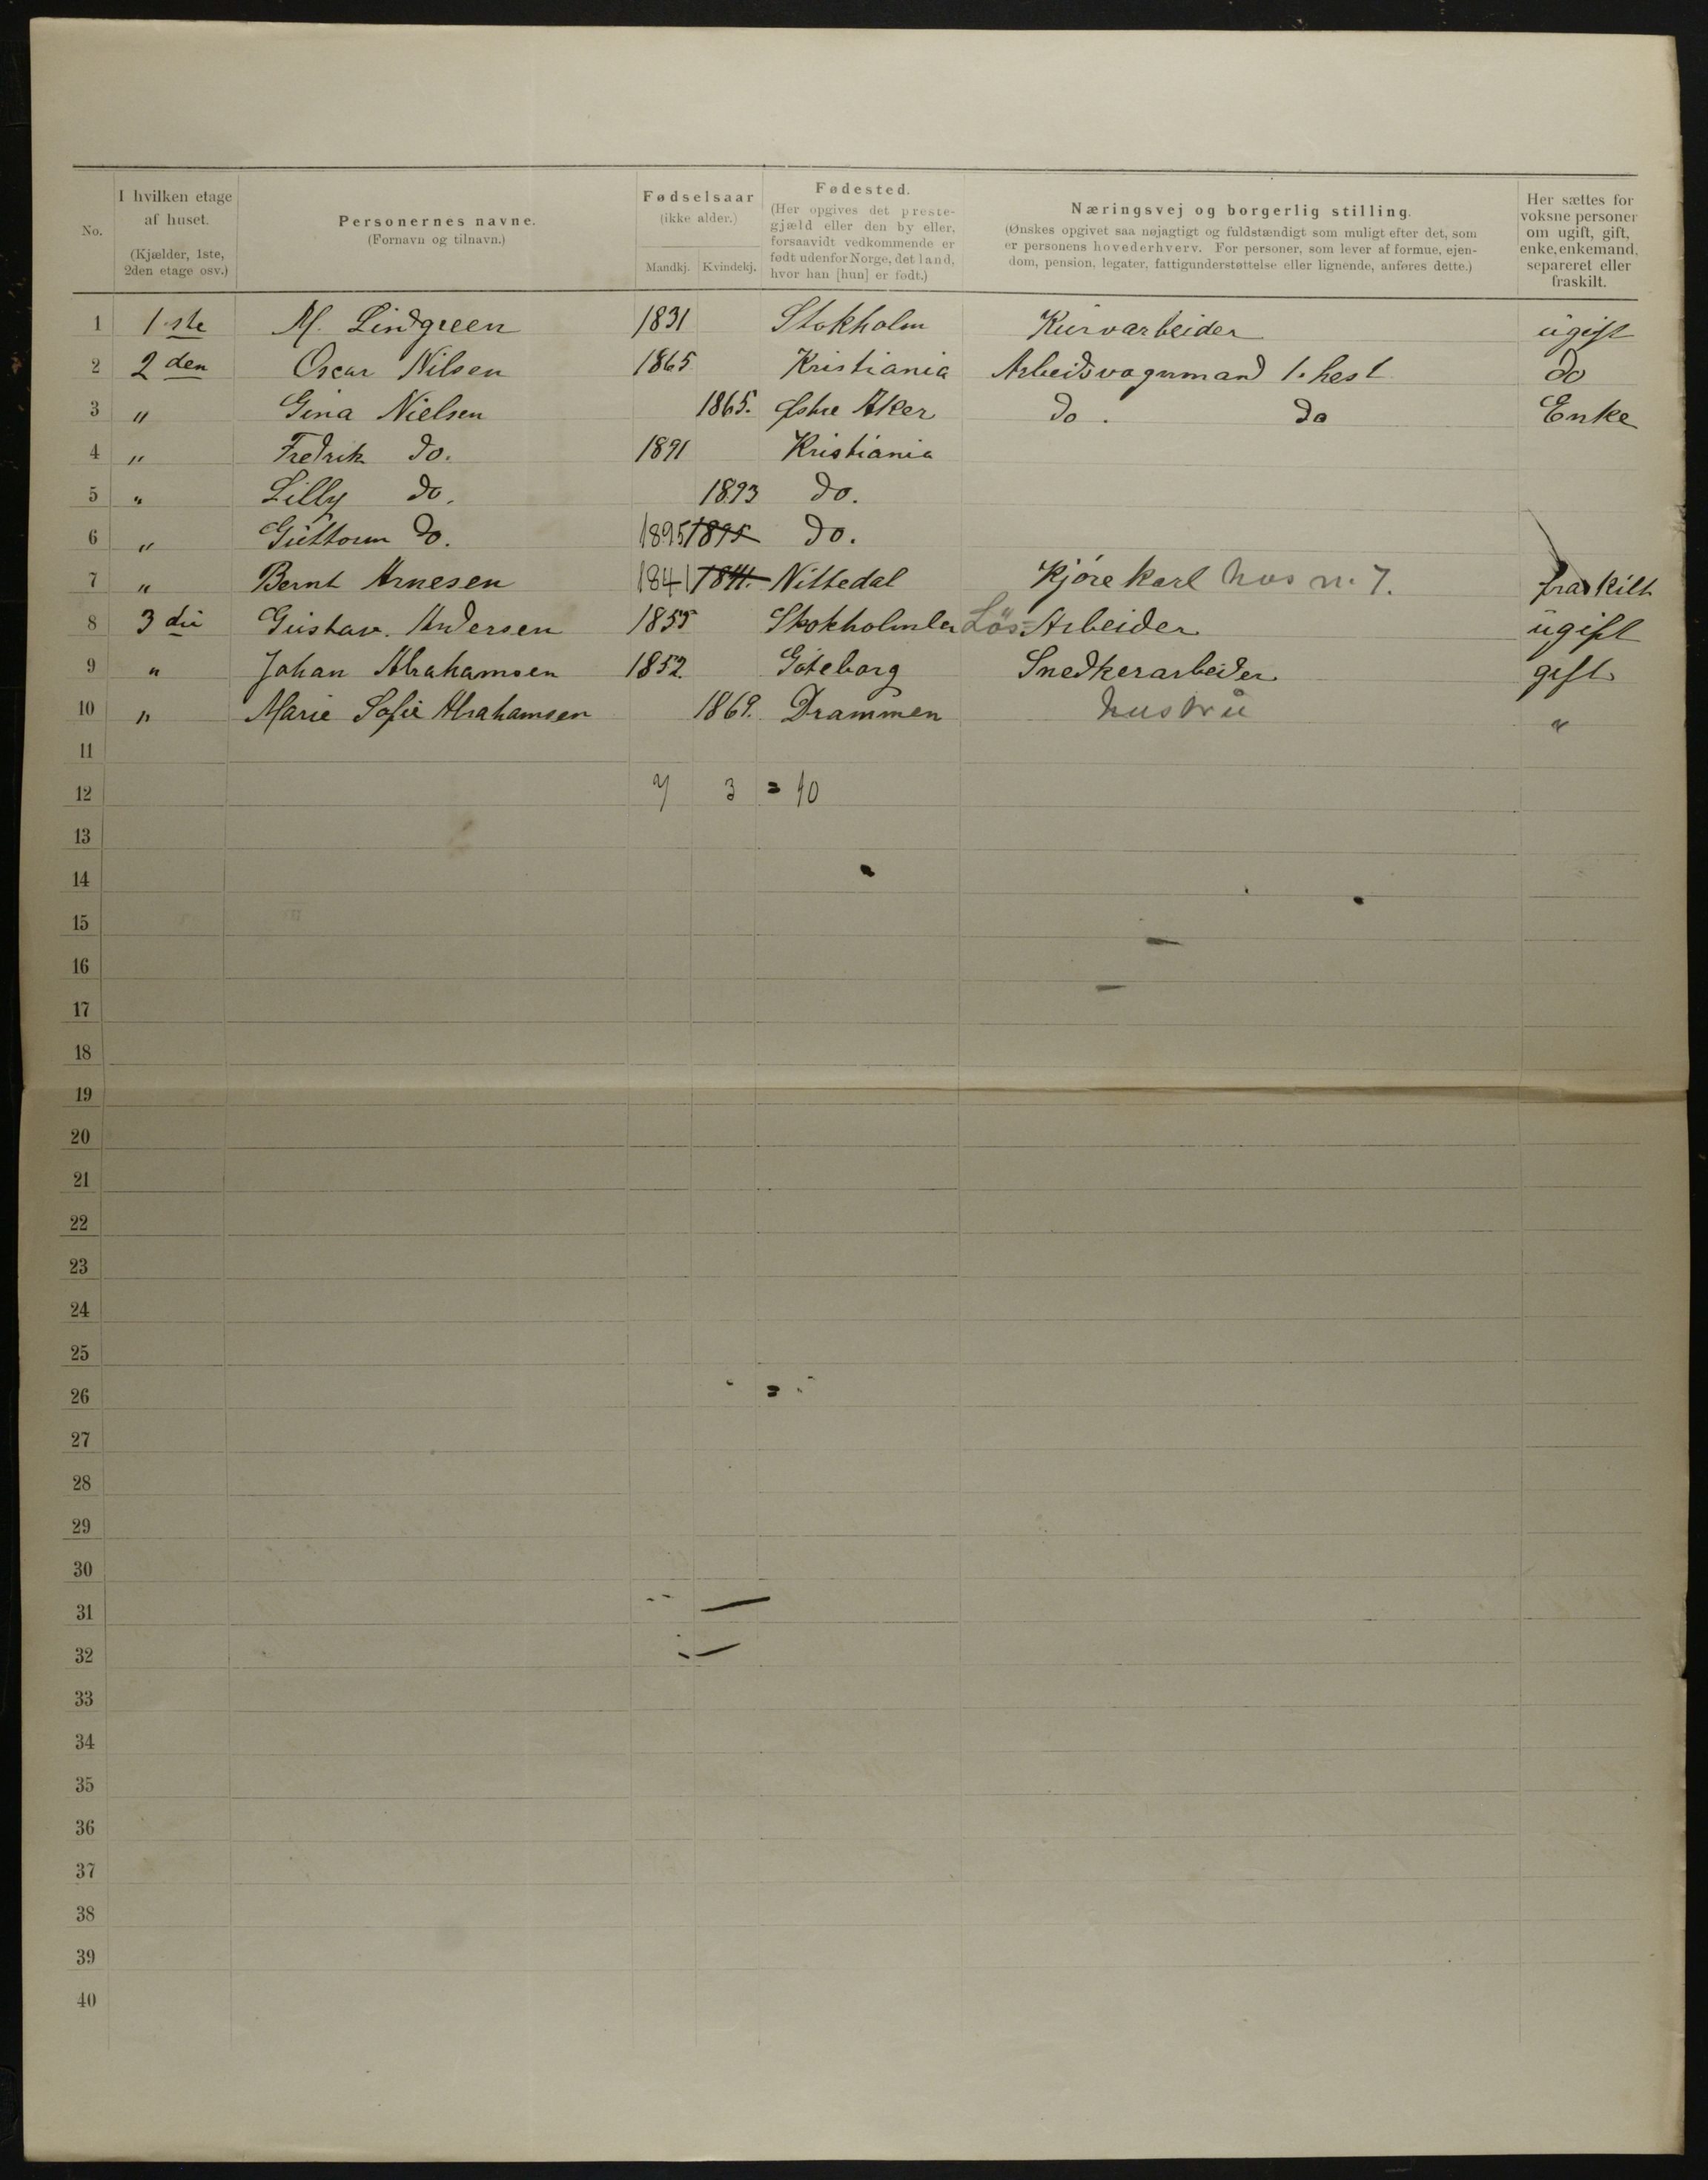 No. | I hvilken etage af huset. (Kjælder, 1ste, 2den etage osv.) | Personernes navne. (Fornavn og tilnavn.) | Fødselsaar (ikke alder.) Mandkj. Kvindekj. | Fødested. (Her opgives det prestegjæld eller den by eller, forsaavidt vedkommende er født udenfor Norge, det land, hvor han [hun] er født.) | Næringsvej og borgerlig stilling. (Ønskes opgivet saa nøjagtigt og fuldstændigt som muligt efter det, som er personens hovederhverv. For personer, som lever af formue, ejendom, pension, legater, fattigunderstøttelse eller lignende, anføres dette.) | Her sættes for voksne personer om ugift, gift, enke, enkemand, separeret eller fraskilt.
1 1ste M. Lindgreen 1831 Stokholm Kurvarbeider ugift
2 2den Oscar Nilsen 1865 Kristiania Arbeidsvognmand 1. hest do
3 " Gina Nielsen 1865. Østre Aker do. do Enke
4 " Fredrik do. 1891 Kristiania
5 " Lilly do. 1893 do.
6 " Guttorm do. 1895 1895 do.
7 " Bernt Arnesen 1841 1841. Nittedal Kjøre karl hos n. 7. fraskilt
8 3die Gustav. Andersen 1855 Stokholmlen Løs-Arbeider ugift
9 " Johan Abrahamsen 1852. Göteborg Snedkerarbeider gift
10 " Marie Sofie Abrahamsen 1869. Drammen hustru "
11
12 7 3 = 10
13
14
15
16
17
18
19
20
21
22
23
24
25
26
27
28
29
30
31
32
33
34
35
36
37
38
39
40